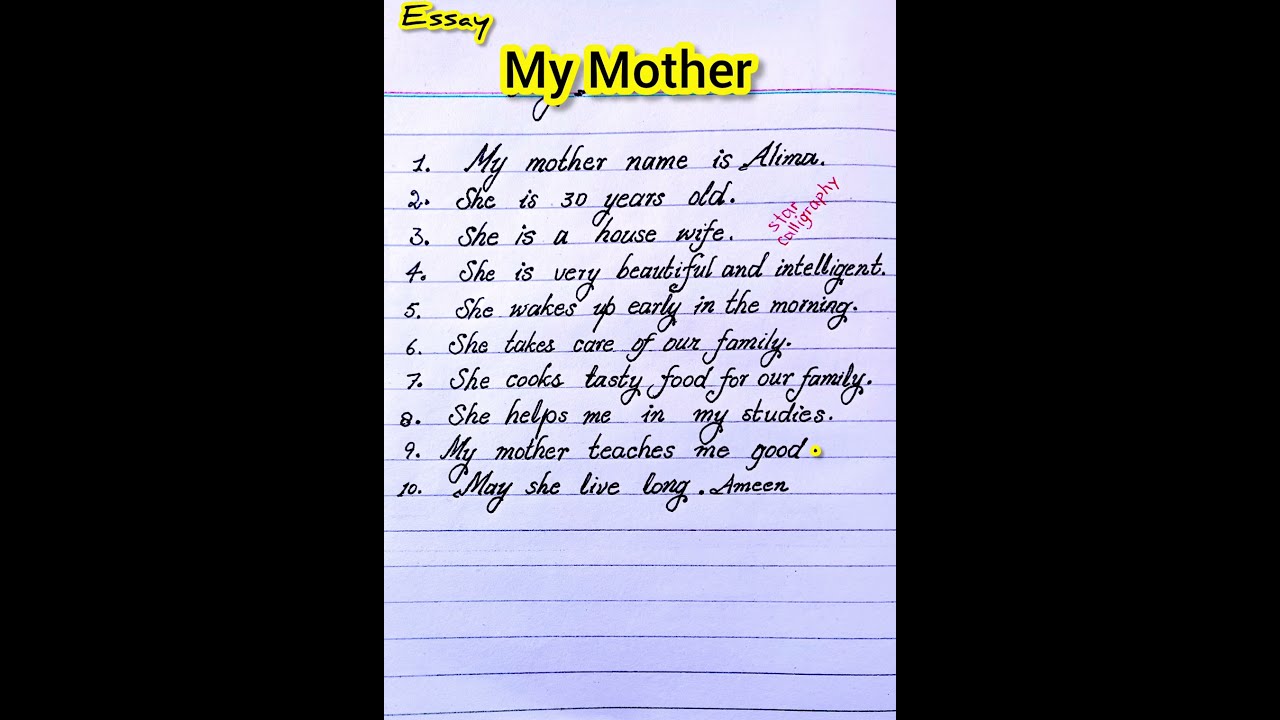 Essay
My Mother
1. My mother name is Alima.
2. She is 30 years old.
star
calligraphy
3. She is a house wife.
4. She is very beautiful and intelligent.
5. She wakes up early in the morning.
6. She takes care of our family.
7. She cooks tasty food for our family.
8. She helps me in my studies.
9. My mother teaches me good.
10. May she live long. Ameen